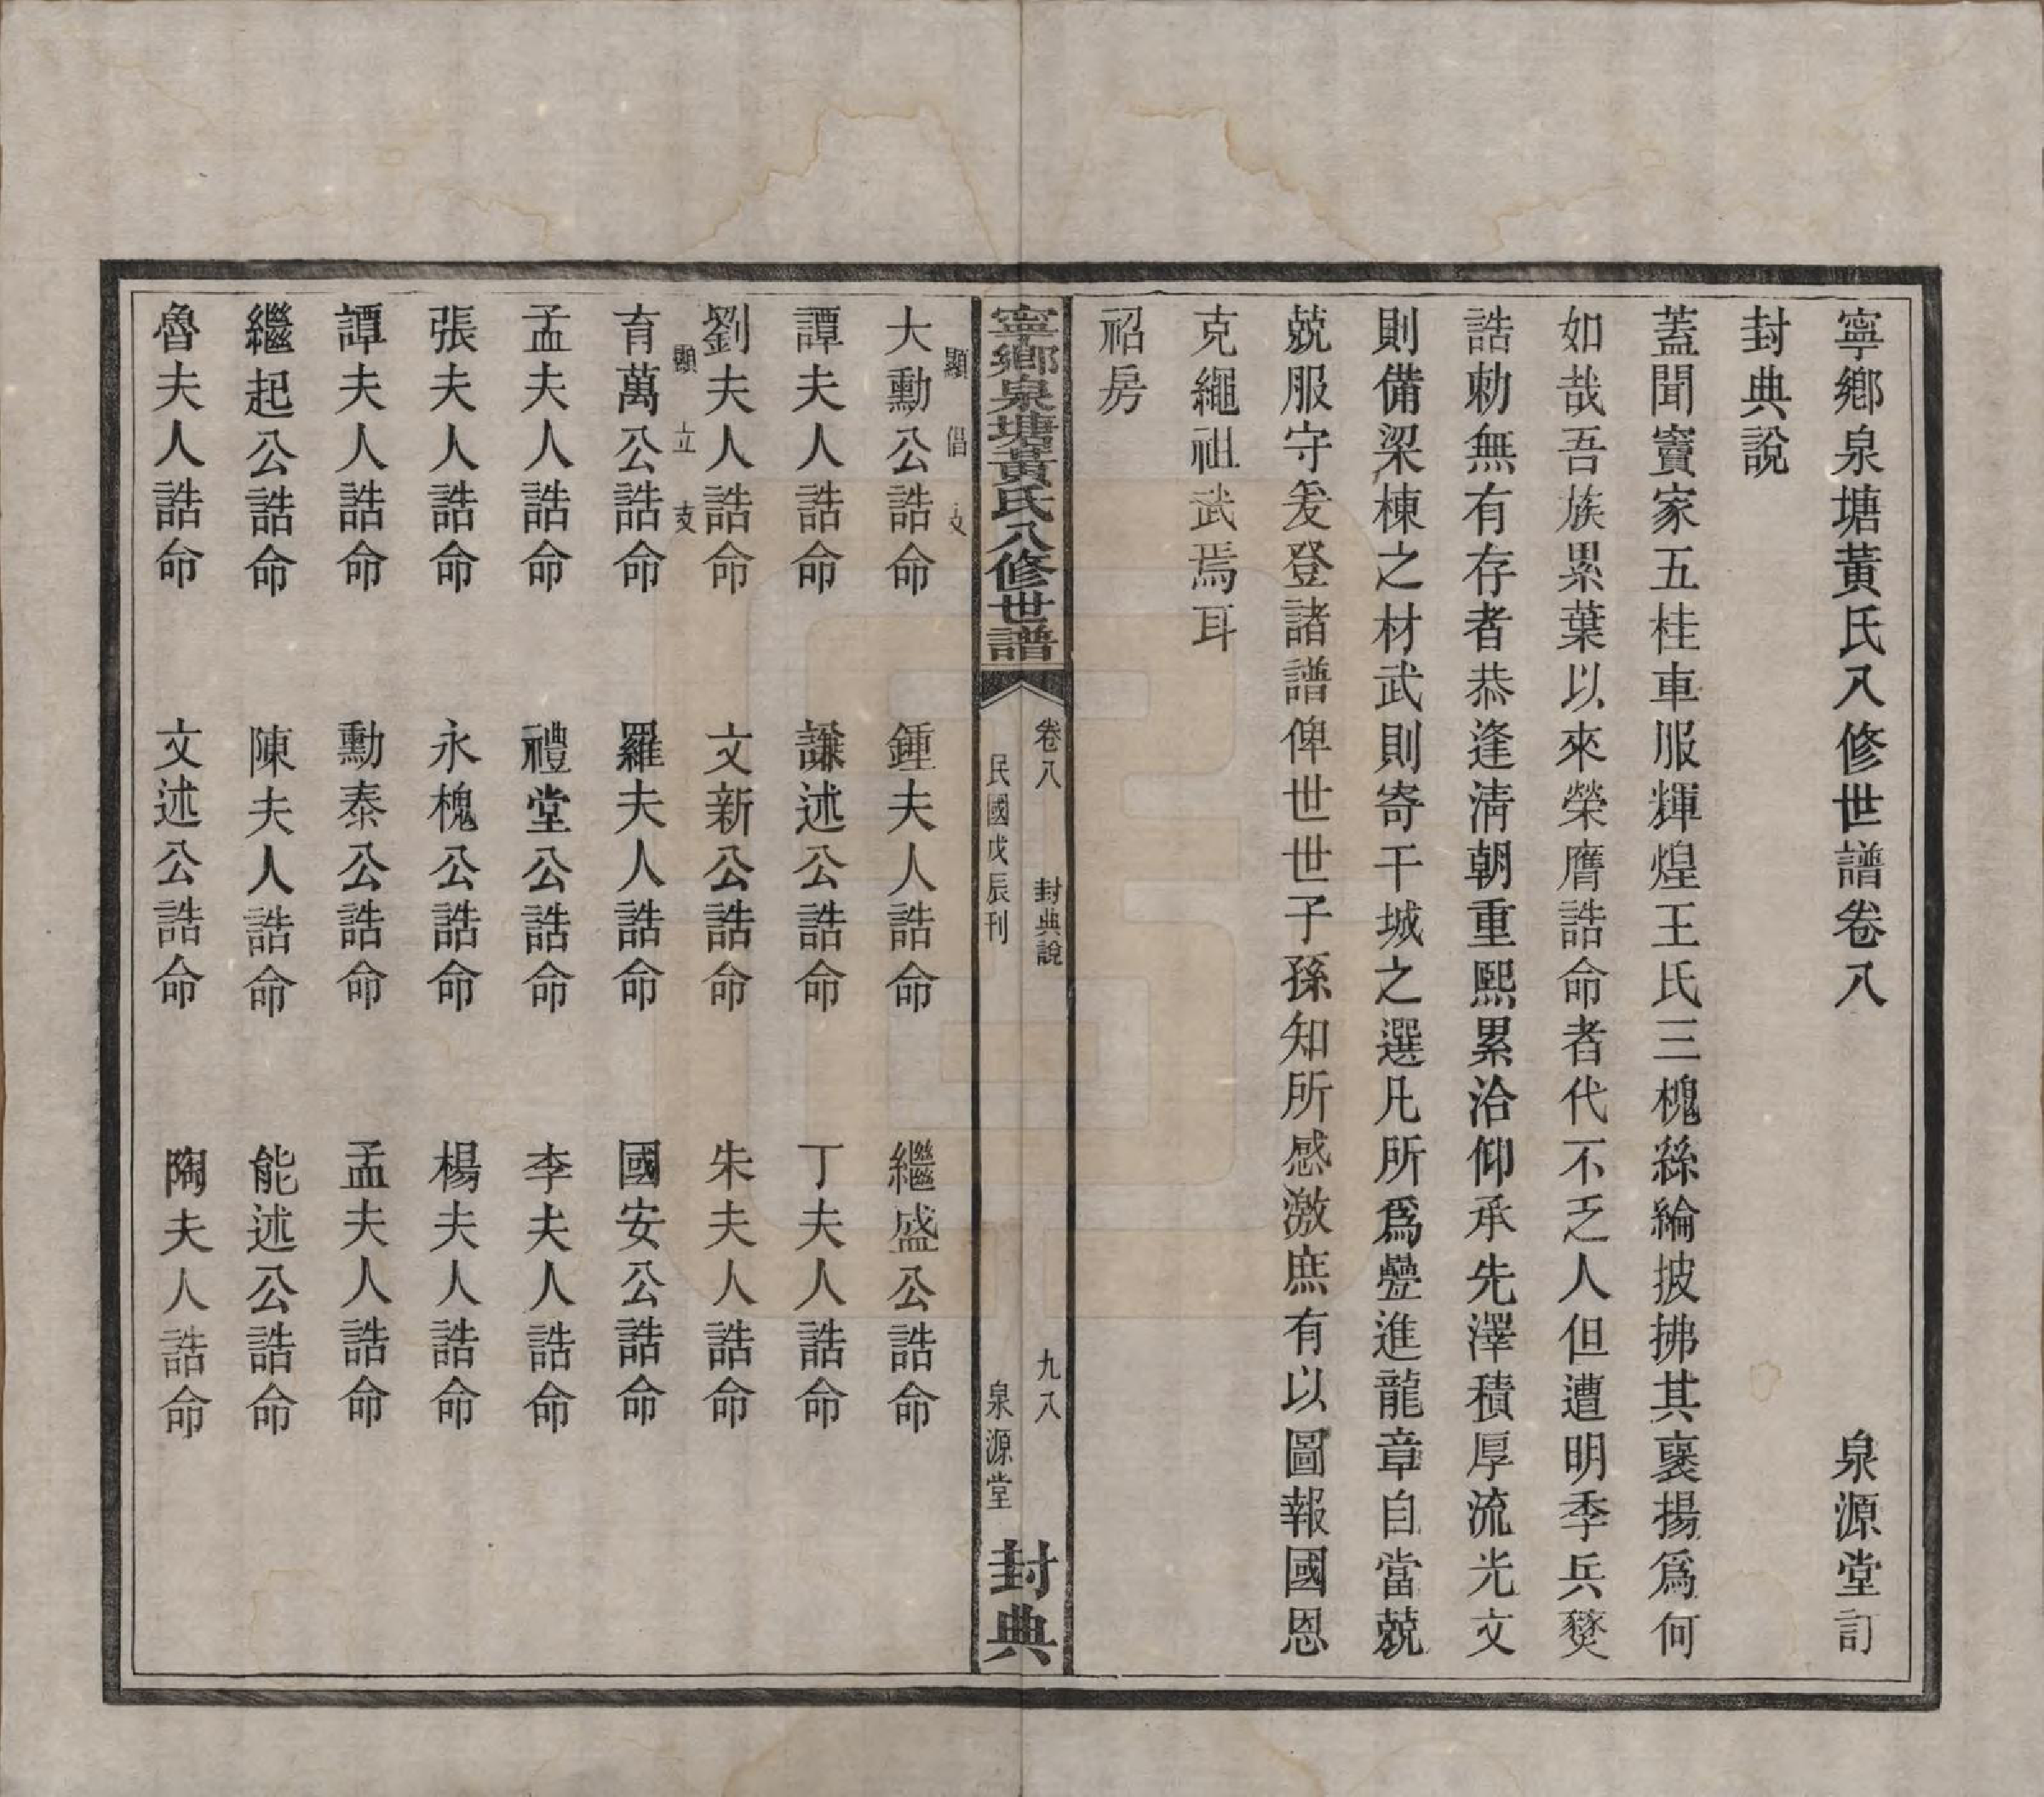 寧鄉泉塘黃氏八修世譜卷八　泉源堂訂
封典說
蓋聞竇家五桂車服輝煌王氏三槐絲綸披拂其襃揚爲何
如哉吾族累葉以來榮膺誥命者代不乏人但遭明季兵燹
誥勅無有存者恭逢淸朝重熙累洽仰承先澤積厚流光文
則備梁棟之材武則寄干城之選凡所爲疊進龍章自當兢
兢服守爰登諸譜俾世世子孫知所感激庶有以圖報國恩
克繩祖武焉耳
祒房
寧鄉泉塘黃氏八修世譜
卷八　封典說　九八
民國戊辰刊　泉源堂
封典
顯倡支
大勳公誥命　鍾夫人誥命　繼盛公誥命
譚夫人誥命　謙述公誥命　丁夫人誥命
劉夫人誥命　文新公誥命　朱夫人誥命
顯立支
育萬公誥命　羅夫人誥命　國安公誥命
孟夫人誥命　禮堂公誥命　李夫人誥命
張夫人誥命　永槐公誥命　楊夫人誥命
譚夫人誥命　勳泰公誥命　孟夫人誥命
繼起公誥命　陳夫人誥命　能述公誥命
魯夫人誥命　文述公誥命　陶夫人誥命